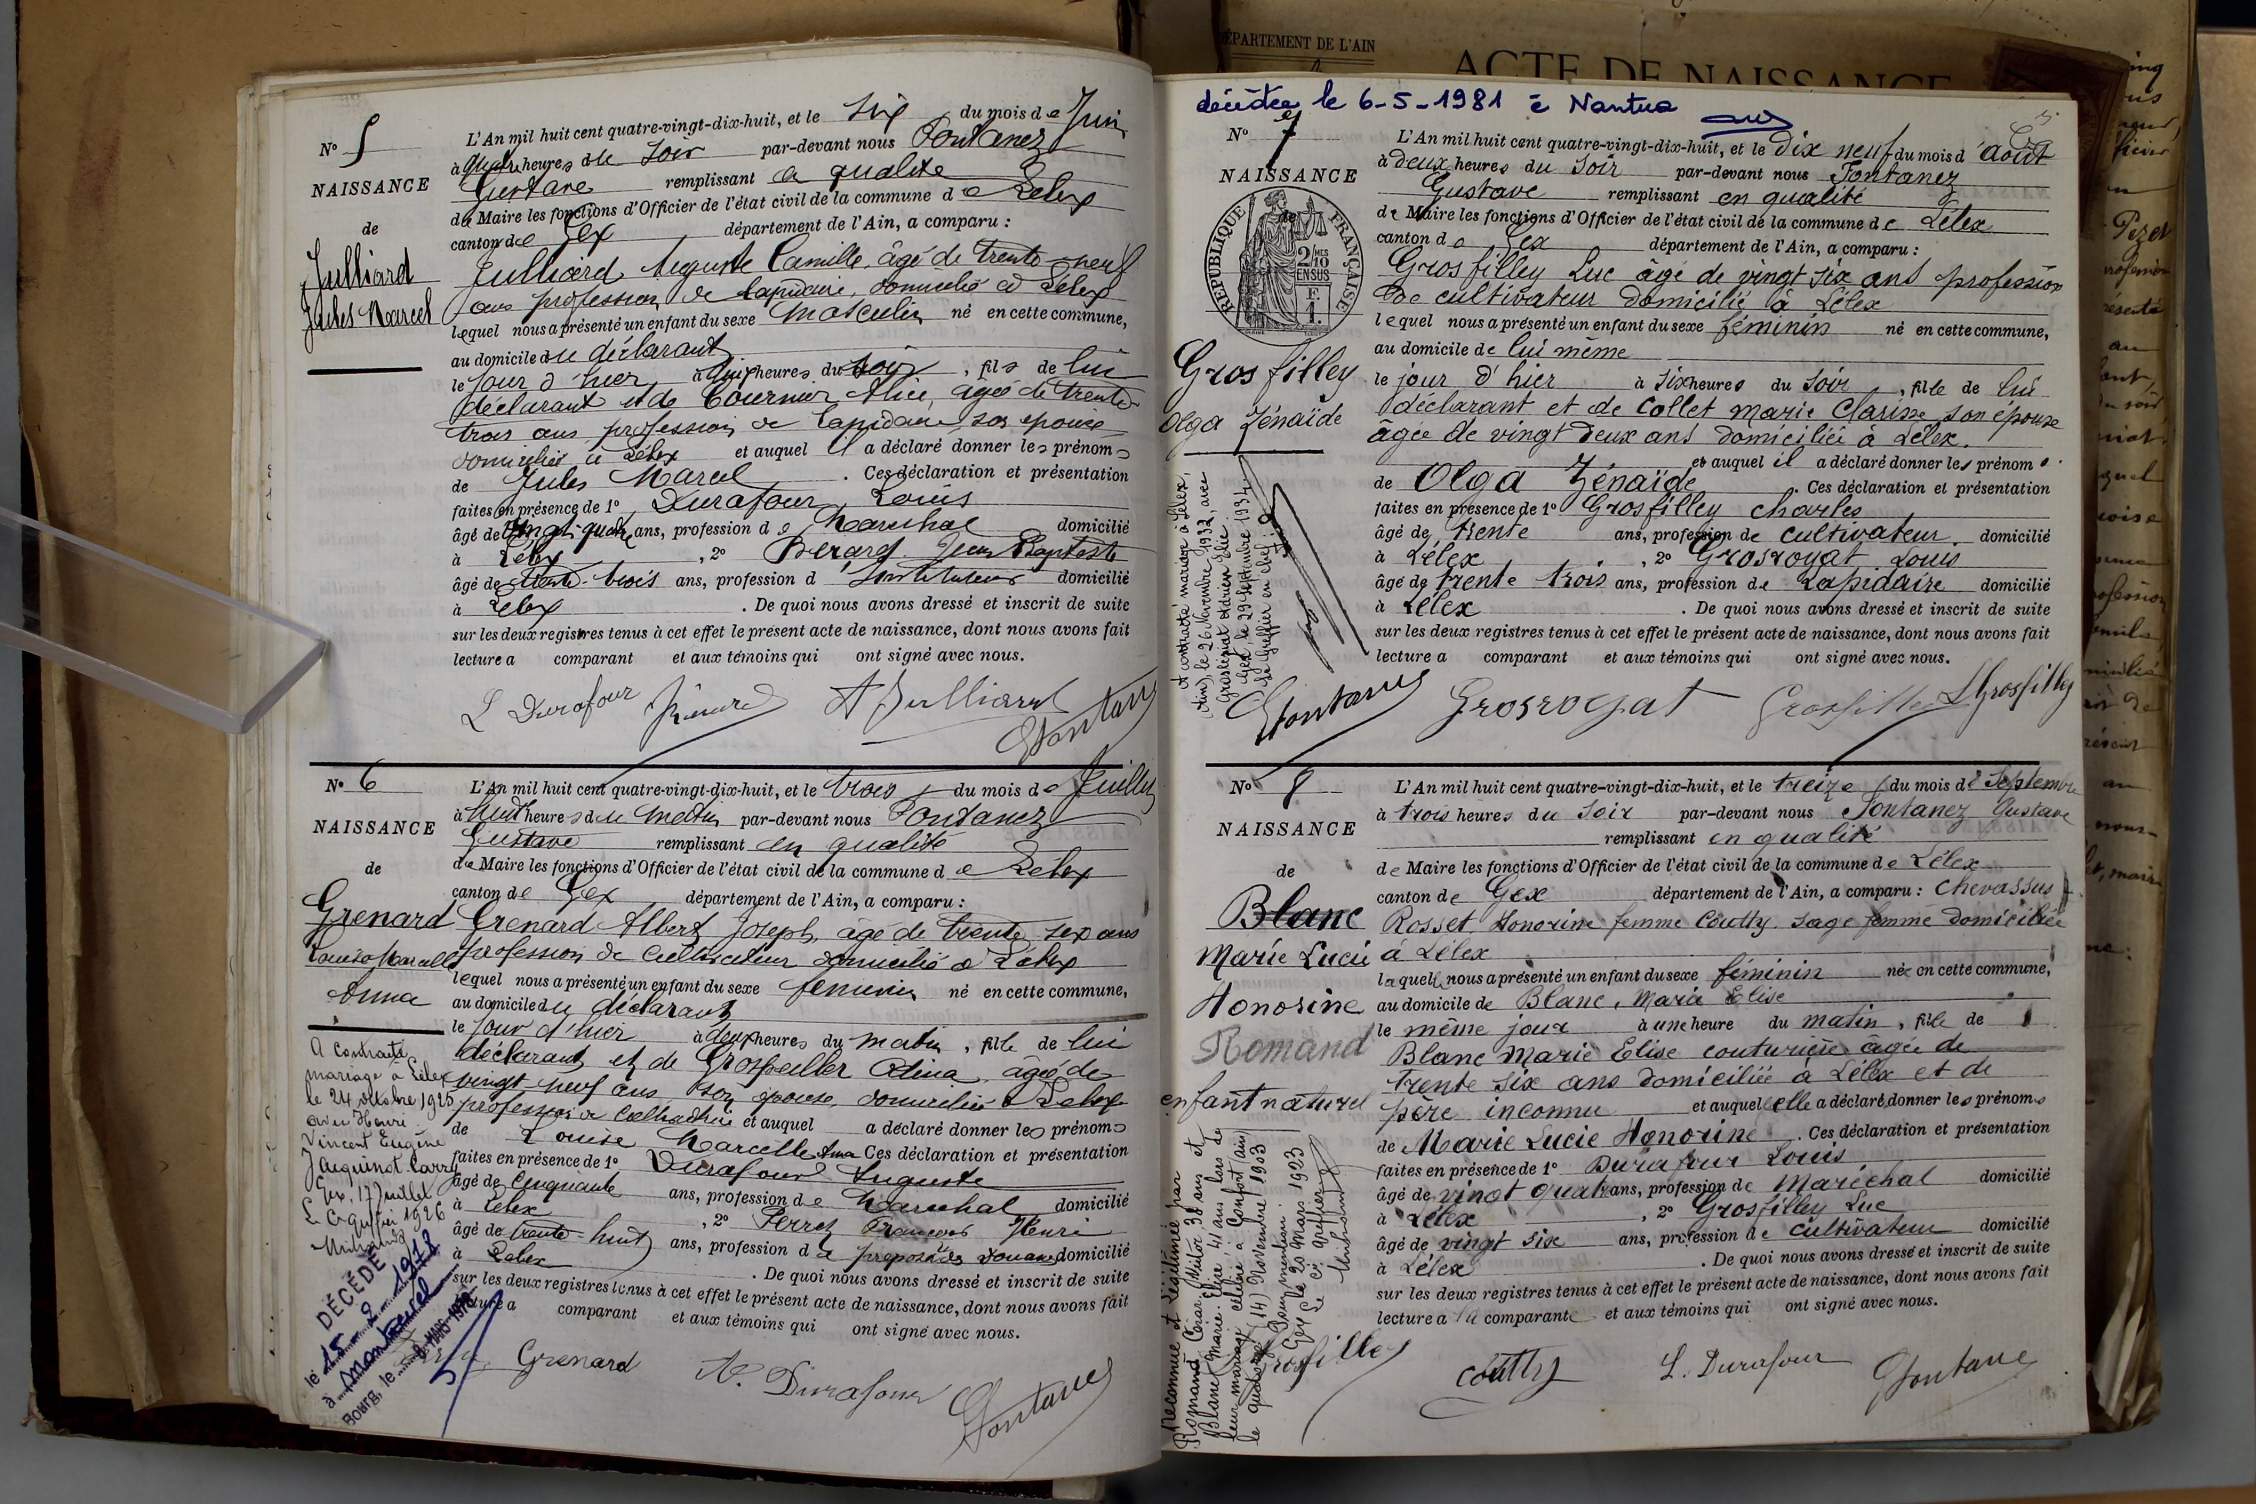 N° 5
NAISSANCE
de
Julliard
Jules Marcel
L'An mil huit cent quatre-vingt-dix-huit, et le six du mois de Juin
à quatre heures du soir par-devant nous Fontanez
Gustave remplissant en qualité
de Maire les fonctions d'Officier de l'état civil de la commune de Lélex
canton de Gex département de l'Ain, a comparu :
Julliard Auguste Camille, âgé de trente neuf
ans profession de lapidaire, domicilié à Lélex
lequel nous a présenté un enfant du sexe masculin né en cette commune,
au domicile du déclarant
le jour d'hier à heures du soir, fils de lui
déclarant et de Tournier Alice, âgée de trente
trois ans profession de lapidaire, son épouse
domiciliée à Lélex et auquel il a déclaré donner les prénoms
de Jules Marcel. Ces déclaration et présentation
faites en présence de 1° Durafour Louis
âgé de vingt-quatre ans, profession de Maréchal domicilié
à Lélex, 2° Berard Jean Baptiste
âgé de trente-trois ans, profession d'Instituteur domicilié
à Lélex. De quoi nous avons dressé et inscrit de suite
sur les deux registres tenus à cet effet le présent acte de naissance, dont nous avons fait
lecture a comparant et aux témoins qui ont signé avec nous.
L Durafour A Julliard
GFontanez
N° 6
NAISSANCE
de
Grenard
Louise Marcelle
Anna
A contracté
mariage à Lélex
le 24 octobre 1925
avec Henri
Vincent Eugène
Jacquinot-Carry
Gex, 17 Juillet 1926
Le Cis Greffier
DÉCÉDÉ
le 15 2 1978
à
Bourg, le
L'An mil huit cent quatre-vingt-dix-huit, et le trois du mois de Juillet
à huit heures du matin par-devant nous Fontanez
Gustave remplissant en qualité
de Maire les fonctions d'Officier de l'état civil de la commune de Lélex
canton de Gex département de l'Ain, a comparu :
Grenard Albert Joseph, âgé de trente six ans
profession de cultivateur domicilié à Lélex
lequel nous a présenté un enfant du sexe féminin né en cette commune,
au domicile du déclarant
le jour d'hier à deux heures du matin, fille de lui
déclarant et de Grosfeiller Adina, âgée de
vingt neuf ans, son épouse, domiciliée à Lélex
profession de cultivatrice et auquel a déclaré donner les prénoms
de Louise Marcelle Anna Ces déclaration et présentation
faites en présence de 1° Durafour Auguste
âgé de cinquante ans, profession de Maréchal domicilié
à Lélex, 2° Perret François Henri
âgé de trente-huit ans, profession de préposé des douanes domicilié
à Lélex. De quoi nous avons dressé et inscrit de suite
sur les deux registres tenus à cet effet le présent acte de naissance, dont nous avons fait
lecture a comparant et aux témoins qui ont signé avec nous.
Grenard A. Durafour GFontanez
DÉPARTEMENT DE L'AIN
ACTE DE NAISSANCE
décédée le 6-5-1981 à Nantua
N° 7
NAISSANCE
de
RÉPUBLIQUE FRANÇAISE
2/10 MES
EN SUS
F.
1.
Grosfilley
Olga Zénaïde
A contracté mariage à Lélex,
(Ain), le 26 Novembre 1932, avec
Grosgurin Adrien Elie
Gex le 29 Septembre 1934
Le Greffier en chef:
L'An mil huit cent quatre-vingt-dix-huit, et le dix neuf du mois d'août
à deux heures du soir par-devant nous Fontanez
Gustave remplissant en qualité
de Maire les fonctions d'Officier de l'état civil de la commune de Lélex
canton de Gex département de l'Ain, a comparu :
Grosfilley Luc âgé de vingt six ans profession
de cultivateur domicilié à Lélex
lequel nous a présenté un enfant du sexe féminin né en cette commune,
au domicile de lui même
le jour d'hier à six heures du soir, fille de lui
déclarant et de Collet Marie Clarisse son épouse
âgée de vingt deux ans domiciliée à Lélex.
et auquel il a déclaré donner les prénoms
de Olga Zénaïde. Ces déclaration et présentation
faites en présence de 1° Grosfilley Charles
âgé de trente ans, profession de cultivateur domicilié
à Lélex, 2° Grosroyat Louis
âgé de trente trois ans, profession de Lapidaire domicilié
à Lélex. De quoi nous avons dressé et inscrit de suite
sur les deux registres tenus à cet effet le présent acte de naissance, dont nous avons fait
lecture a comparant et aux témoins qui ont signé avec nous.
GFontanez Grosroyat Grosfilley LGrosfilley
N° 8
NAISSANCE
de
Blanc
Marie Lucie
Honorine
Romand
enfant naturel
Reconnue et légitimée par
Romand César, Victor 38 ans et
Blanc Marie-Elise, 41 ans lors de
leur mariage célébré à Confort (Ain)
le quatorze (14) Novembre 1903
Pour mention:
Gex le 20 Mars 1923
Le Cis Greffier
L'An mil huit cent quatre-vingt-dix-huit, et le treize du mois de Septembre
à trois heures du soir par-devant nous Fontanez Gustave
remplissant en qualité
de Maire les fonctions d'Officier de l'état civil de la commune de Lélex
canton de Gex département de l'Ain, a comparu : Chevassus
Rosset Honorine femme Coutty sage femme domiciliée
à Lélex
laquelle nous a présenté un enfant du sexe féminin née en cette commune,
au domicile de Blanc, Marie Elise
le même jour à une heure du matin, fille de
Blanc Marie Elise couturière agée de
trente six ans domiciliée à Lélex et de
père inconnu et auquel elle a déclaré donner les prénoms
de Marie Lucie Honorine. Ces déclaration et présentation
faites en présence de 1° Durafour Louis
âgé de vingt quatre ans, profession de Maréchal domicilié
à Lélex, 2° Grosfilley Luc
âgé de vingt six ans, profession de cultivateur domicilié
à Lélex. De quoi nous avons dressé et inscrit de suite
sur les deux registres tenus à cet effet le présent acte de naissance, dont nous avons fait
lecture a la comparante et aux témoins qui ont signé avec nous.
Grosfilley Coutty L. Durafour GFontanez